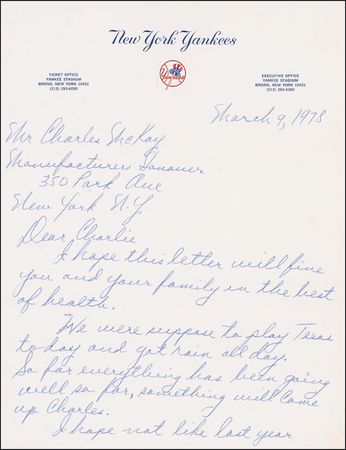 New York Yankees
TICKET OFFICE
YANKEE STADIUM
BRONX, NEW YORK 10451
(212) 293-6000
EXECUTIVE OFFICE
YANKEE STADIUM
BRONX, NEW YORK 10451
(212) 293-4300
March 9, 1978
Mr Charles McKay
Manufacturers Hanover
350 Park Ave
New York N.Y.
Dear Charlie
I hope this letter will fine
you and your family in the best
of health.
We were suppose to play Texas
today and got rain all day.
So far everything has been going
well so far, something will come
up Charles.
I hope not like last year